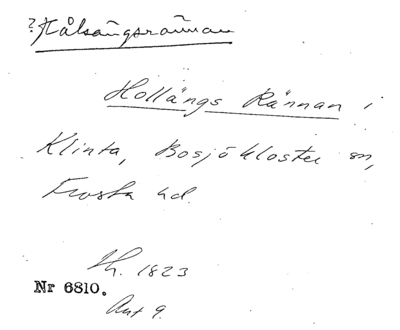 ? Hålsängsrännan
Hollängs Rännan i
Klinta, Bosjökloster sn,
Frosta hd.
Lh. 1823
Nr 6810.
Akt 9.